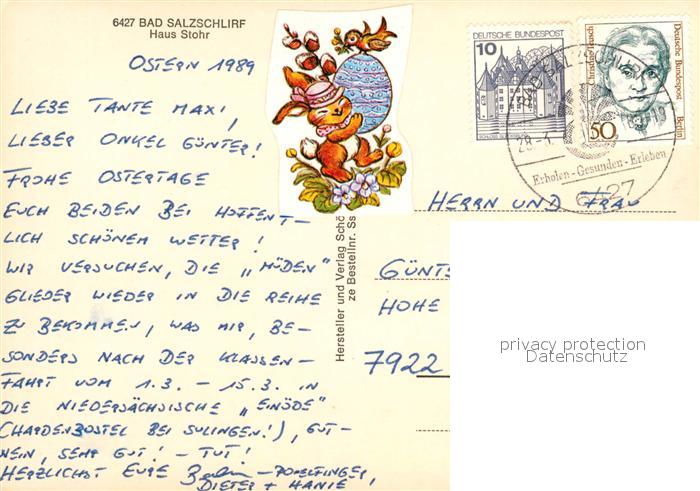 6427 BAD SALZSCHLIRF
Haus Stohr
OSTERN 1989
LIEBE TANTE MAXI,
LIEBER ONKEL GÜNTER!
FROHE OSTERTAGE
EUCH BEIDEN BEI HOFFENT-
LICH SCHÖNEM WETTER!
WIR VERSUCHEN, DIE „MÜDEN"
GLIEDER WIEDER IN DIE REIHE
ZU BEKOMMEN, WAS MIR, BE-
SONDERS NACH DER KLASSEN-
FAHRT VOM 1.3. – 15.3. IN
DIE NIEDERSÄCHSISCHE „EINÖDE"
(HARDENBOSTEL BEI SULINGEN!), GUT-
NEIN, SEHR GUT! – TUT!
HERZLICHST EURE
DIETER + HANIE,
Hersteller und Verlag Schö
ze Bestellnr. Ss
10 DEUTSCHE BUNDESPOST
Deutsche Bundespost
Berlin
50
28.-3.
Erholen-Gesunden-Erleben
6427
HERRN UND FRAU
GÜNT
HOHE
7922
privacy protection
Datenschutz